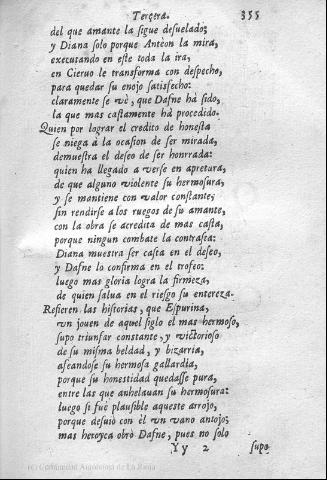 Terçera. 355
del que amante la ſigue deſuelado;
y Diana ſolo porque Antèon la mira,
executando en eſte toda la ira,
en Cieruo le transforma con deſpecho,
para quedar ſu enojo ſatisfecho:
claramente ſe vè, que Dafne hà ſido,
la que mas caſtamente hà procedido.
Quien por lograr el credito de honeſta
ſe niega à la ocaſion de ſer mirada,
demueſtra el deſeo de ſer honrrada:
quien ha llegado a verſe en apretura,
de que alguno violente ſu hermoſura,
y ſe mantiene con valor conſtante;
ſin rendirſe a los ruegos de ſu amante,
con la obra ſe acredita de mas caſta,
porque ningun combate la contraſta:
Diana mueſtra ſer caſta en el deſeo,
y Dafne lo confirma en el trofeo:
luego mas gloria logra la firmeza,
de quien ſalua en el rieſgo ſu entereza.
Refieren las hiſtorias, que Eſpurina,
un jouen de aquel ſiglo el mas hermoſo,
ſupo triunfar conſtante, y victorioſo
de ſu miſma beldad, y bizarria,
afeandoſe ſu hermoſa gallardia,
porque ſu honeſtidad quedaſſe pura,
entre las que anhelauan ſu hermoſura:
luego ſi fuè plauſible aqueſte arrojo,
porque deſuiò con èl un vano antojo;
mas heroyca obrò Dafne, pues no ſolo
Yy 2 ſupo
(c) Comunidad Autónoma de La Rioja